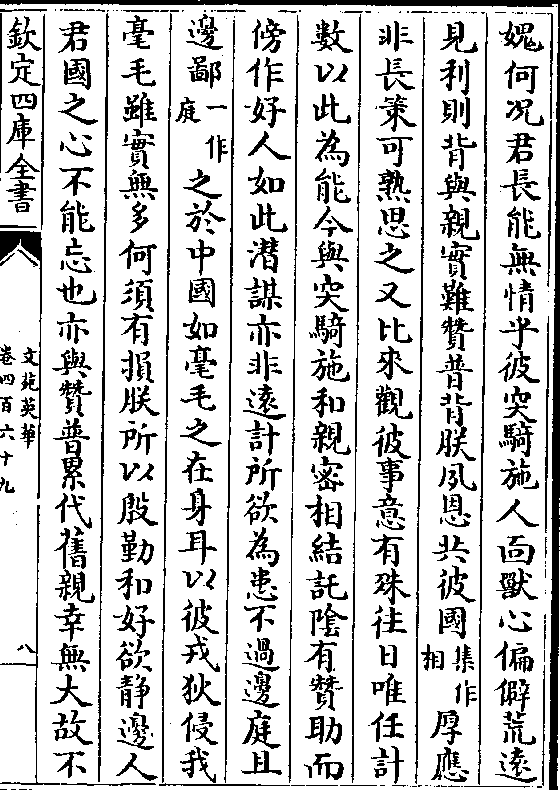 媿何况君長能無情乎彼突騎施人面獸心偏僻荒遠
見利則背與親實難贊普背朕夙恩共彼國集作相厚應
非長策可熟思之又比來觀彼事意有殊往日唯任計
數以此為能今與突騎施和親密相結託隂有贊助而
傍作好人如此潜謀亦非遠計所欲為患不過邊庭且
邊鄙一作庭之於中國如毫毛之在身耳以彼戎狄侵我
毫毛雖實無多何須有損朕所以殷勤和好欲静邊人
君國之心不能忘也亦與贊普累代舊親幸無大故不
欽定四庫全書
文苑英華
卷四百六十九
八